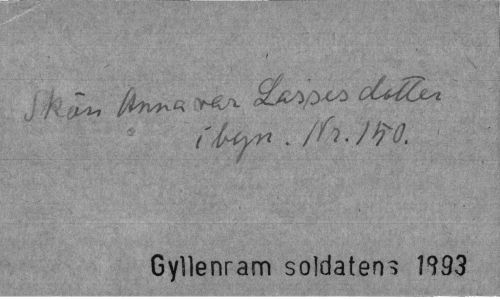 Skön Anna var Lasses dotter
i byn. Nr. 150.
Gyllenram soldatens 1993